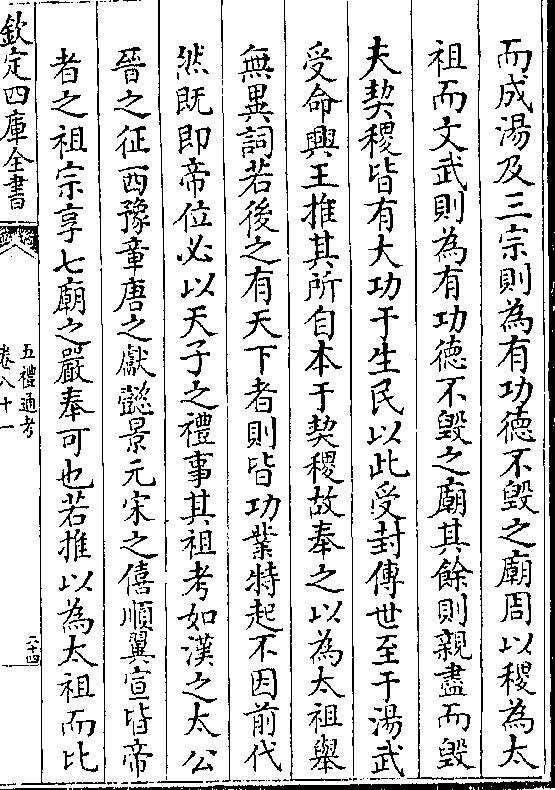 而成湯及三宗則為有功德不毀之廟周以稷為太
祖而文武則為有功德不毀之廟其餘則親盡而毀
夫契稷皆有大功于生民以此受封傳世至于湯武
受命興王推其所自本于契稷故奉之以為太祖舉
無異詞若後之有天下者則皆功業特起不因前代
然既即帝位必以天子之禮事其祖考如漢之太公
晉之征西豫章唐之獻懿景元宋之僖順翼宣皆帝
者之祖宗享七廟之嚴奉可也若推以為太祖而比
欽定四庫全書
五禮通考
卷八十一
二十四